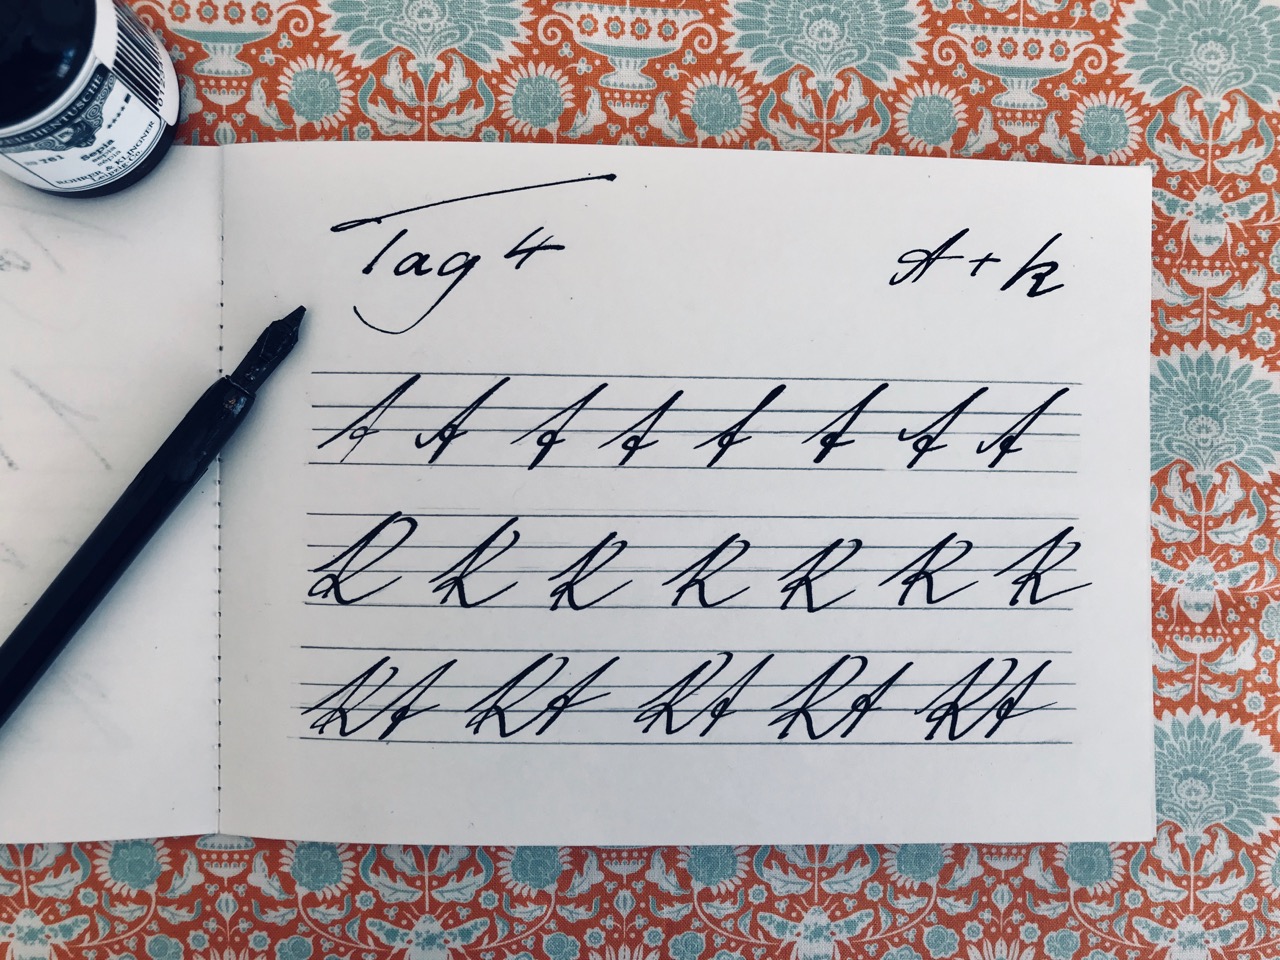 ZEICHENTUSCHE
761 Sepia
sepia
ROHRER & KLINGNER
Leipzig Co
Tag 4 A + k
A A A A A A A A
K K K K K K K
KA KA KA KA KA